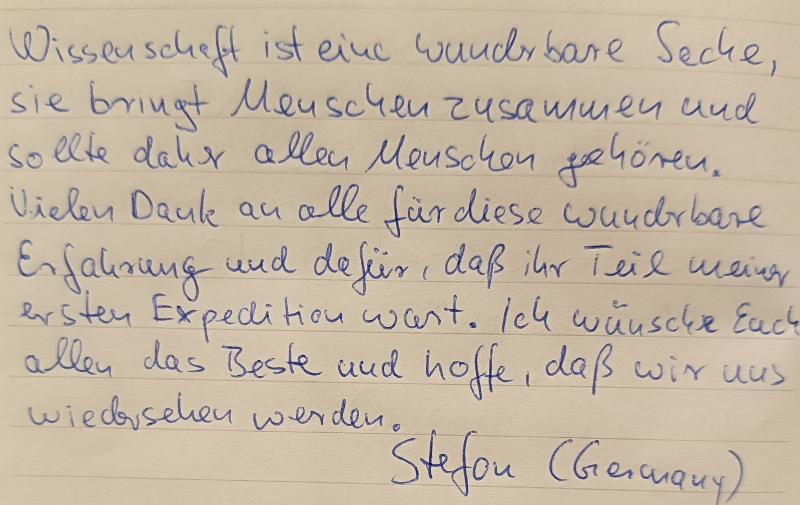 Wissenschaft ist eine wunderbare Sache,
sie bringt Menschen zusammen und
sollte daher allen Menschen gehören.
Vielen Dank an alle für diese wunderbare
Erfahrung und dafür, daß ihr Teil meiner
ersten Expedition wart. Ich wünsche Euch
allen das Beste und hoffe, daß wir uns
wiedersehen werden.
Stefan (Germany)